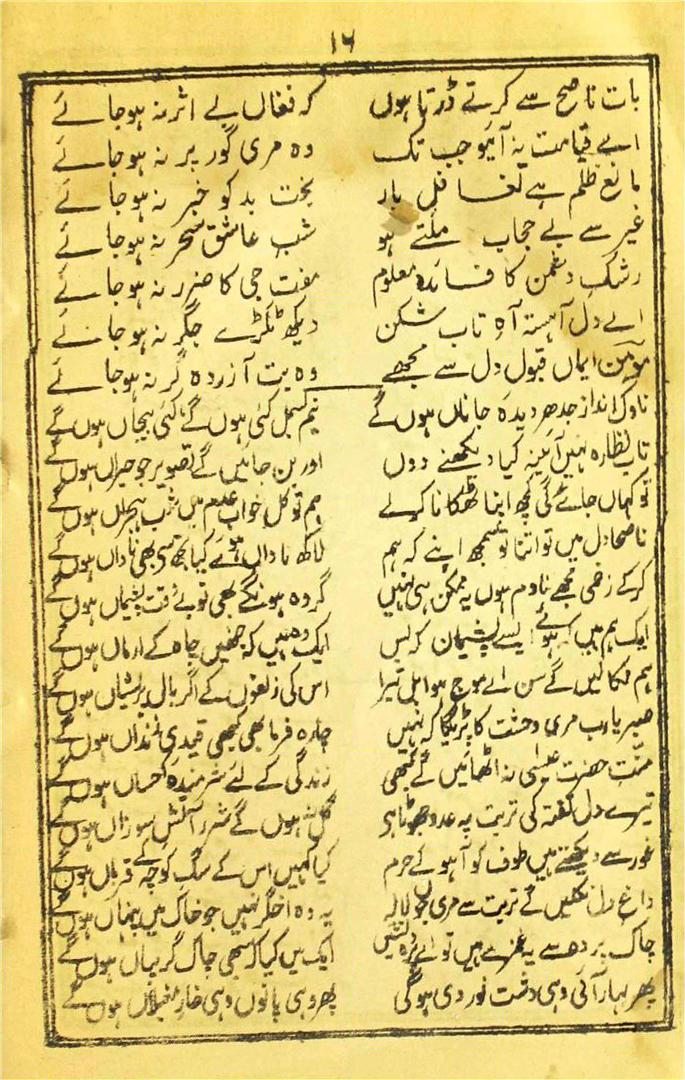 ۱۶
بات ناصح سے کرتے ڈرتا ہوں کہ فغاں بے اثر نہ ہو جائے
اے قیامت نہ آئیو جب تک وہ مری گور پر نہ ہو جائے
مانع ظلم ہے تغافل یار بخت بد کو خبر نہ ہو جائے
غیر سے بے حجاب ملتے ہو شب عاشق سحر نہ ہو جائے
رشک دشمن کا فائدہ معلوم مفت جی کا ضرر نہ ہو جائے
اے دل آہستہ آہ تاب شکن دیکھ ٹکڑے جگر نہ ہو جائے
مومن ایماں قبول دل سے مجھے وہ بت آزردہ گر نہ ہو جائے
ناوک انداز جدھر دیدہ جاناں ہوں گے نیم بسمل کئی ہوں گے کئی بیجاں ہوں گے
تاب نظارہ نہیں آئینہ کیا دیکھنے دوں اور بن جائیں گے تصویر جو حیراں ہوں گے
تو کہاں جائے گی کچھ اپنا ٹھکانا کرلے ہم تو کل خواب عدم میں شب ہجراں ہوں گے
ناصحا دل میں تو اتنا تو سمجھ اپنے کہ ہم لاکھ ناداں ہوئے کیا تجھ سے بھی ناداں ہوں گے
کرکے زخمی مجھے نادم ہوں یہ ممکن ہی نہیں گر وہ ہونگے بھی تو بے وقت پشیماں ہوں گے
ایک ہم ہیں کہ ہوئے ایسے پشیمان کہ بس ایک وہ ہیں کہ جنھیں چاہ کے ارماں ہوں گے
ہم نکالیں گے سن اے موج ہوا بل تیرا اس کی زلفوں کے اگر بال پریشاں ہوں گے
صبر یارب مری وحشت کا پڑیگا کہ نہیں چارہ فرما بھی کبھی قیدی زنداں ہوں گے
منت حضرت عیسیٰ نہ اٹھائیں گے کبھی زندگی کے لئے شرمندہ احساں ہوں گے
تیرے دل تفتہ کی تربت پہ عدو جھوٹا ہی گل نہ ہوں گے شرر آتش سوزاں ہوں گے
غور سے دیکھتے ہیں طوف کو آہوئے حرم کیا کہیں اس کے سگ کوچہ کے قرباں ہوں گے
داغ دل نکلیں گے تربت سے مری جوں لالہ یہ وہ اخگر نہیں جو خاک میں پنہاں ہوں گے
چاک پردہ سے یہ غمزے ہیں تو اے پردہ نشیں ایک میں کیا کہ سبھی چاک گریباں ہوں گے
پھر بہار آئی وہی دشت نوردی ہوگی پھر وہی پانوں وہی خار مغیلاں ہوں گے